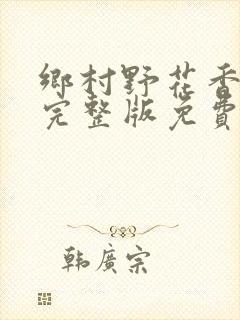 鄉村野花香
完整版免費
韩廣宗